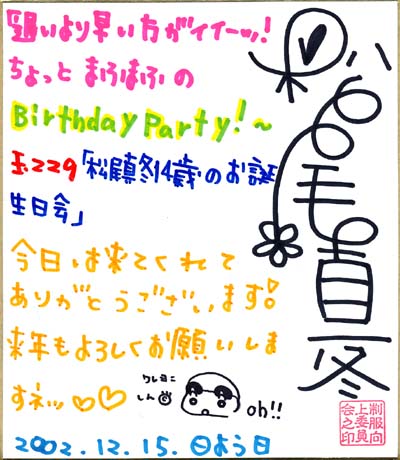 遅いより早い方がイイーッ!
ちょっと まふまふの
Birthday Party!~
229「松尾真冬14歳のお誕
生日会」
今日は来てくれて
ありがとうございます!
来年もよろしくお願いしま
すネッ♡♡
クレヨン
しん
oh!!
2002.12.15.㊐よう日
松尾真冬
制服向
上委員
会之印